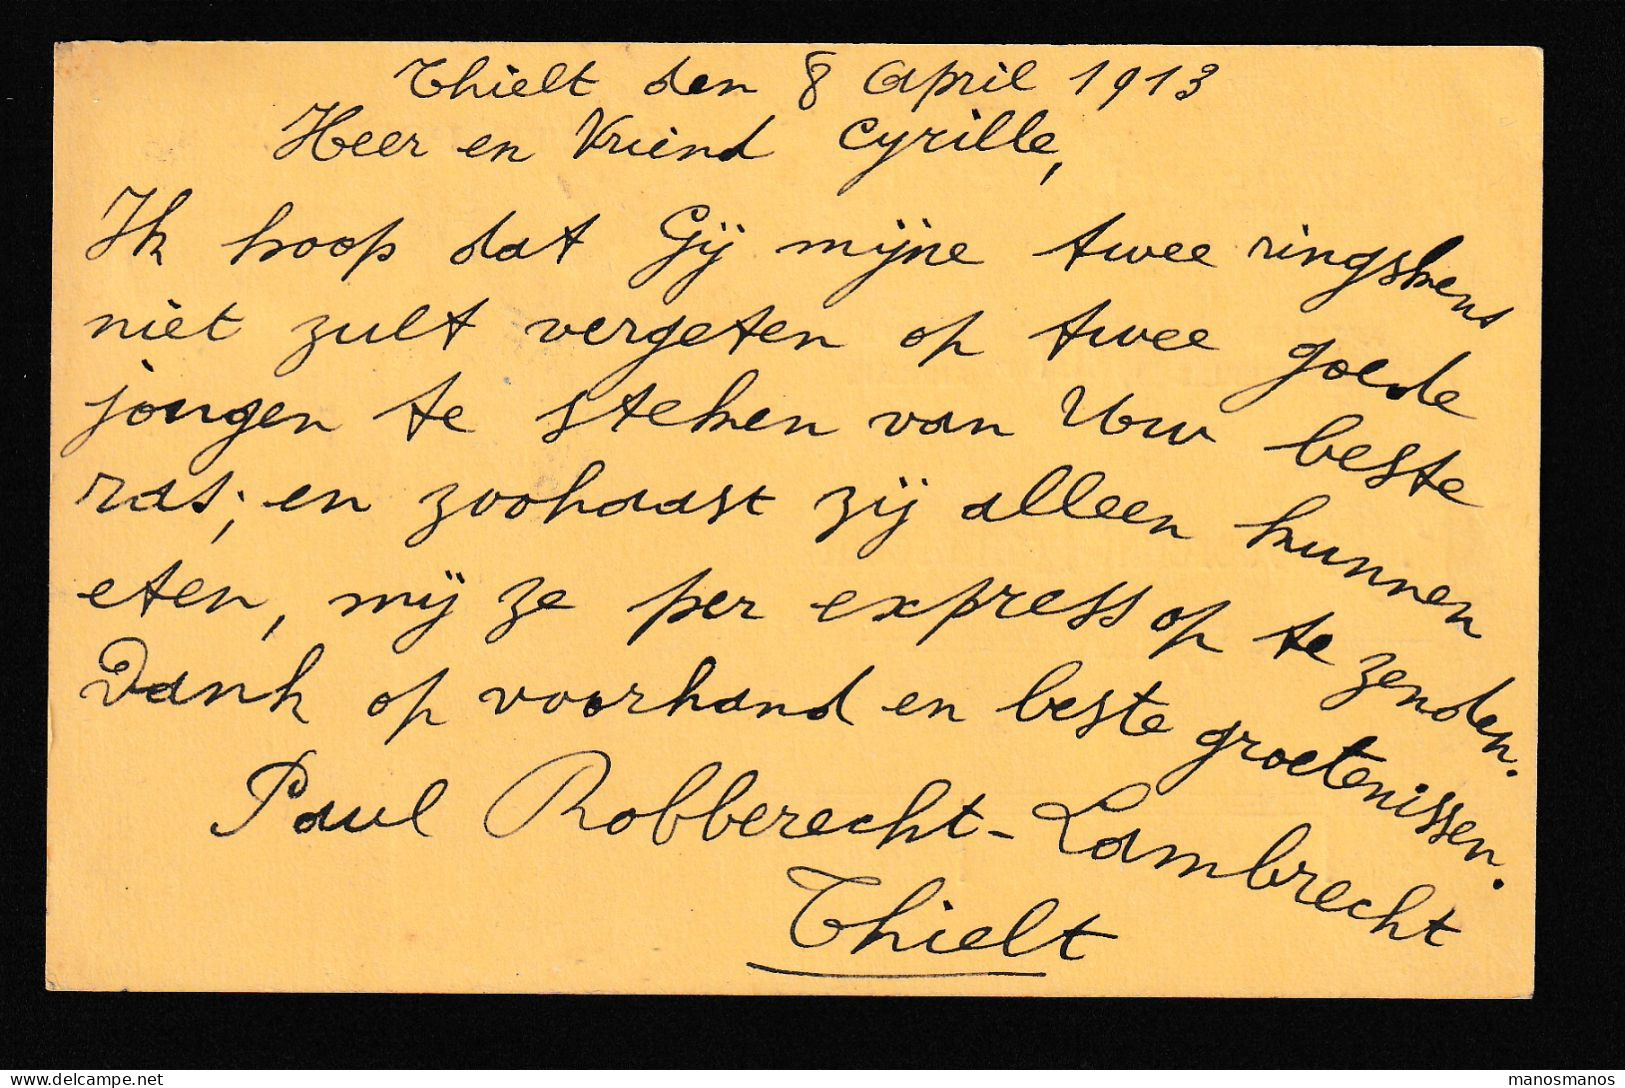 Thielt den 8 April 1913
Heer en Vriend Cyrille,
Ik hoop dat Gij mijne twee ringskens
niet zult vergeten op twee goede
jongen te steken van Uw beste
ras; en zoohaast zij alleen kunnen
eten, mij ze per express op te zenden.
Dank op voorhand en beste groetenissen.
Paul Robberecht-Lambrecht
Thielt
manosmanos